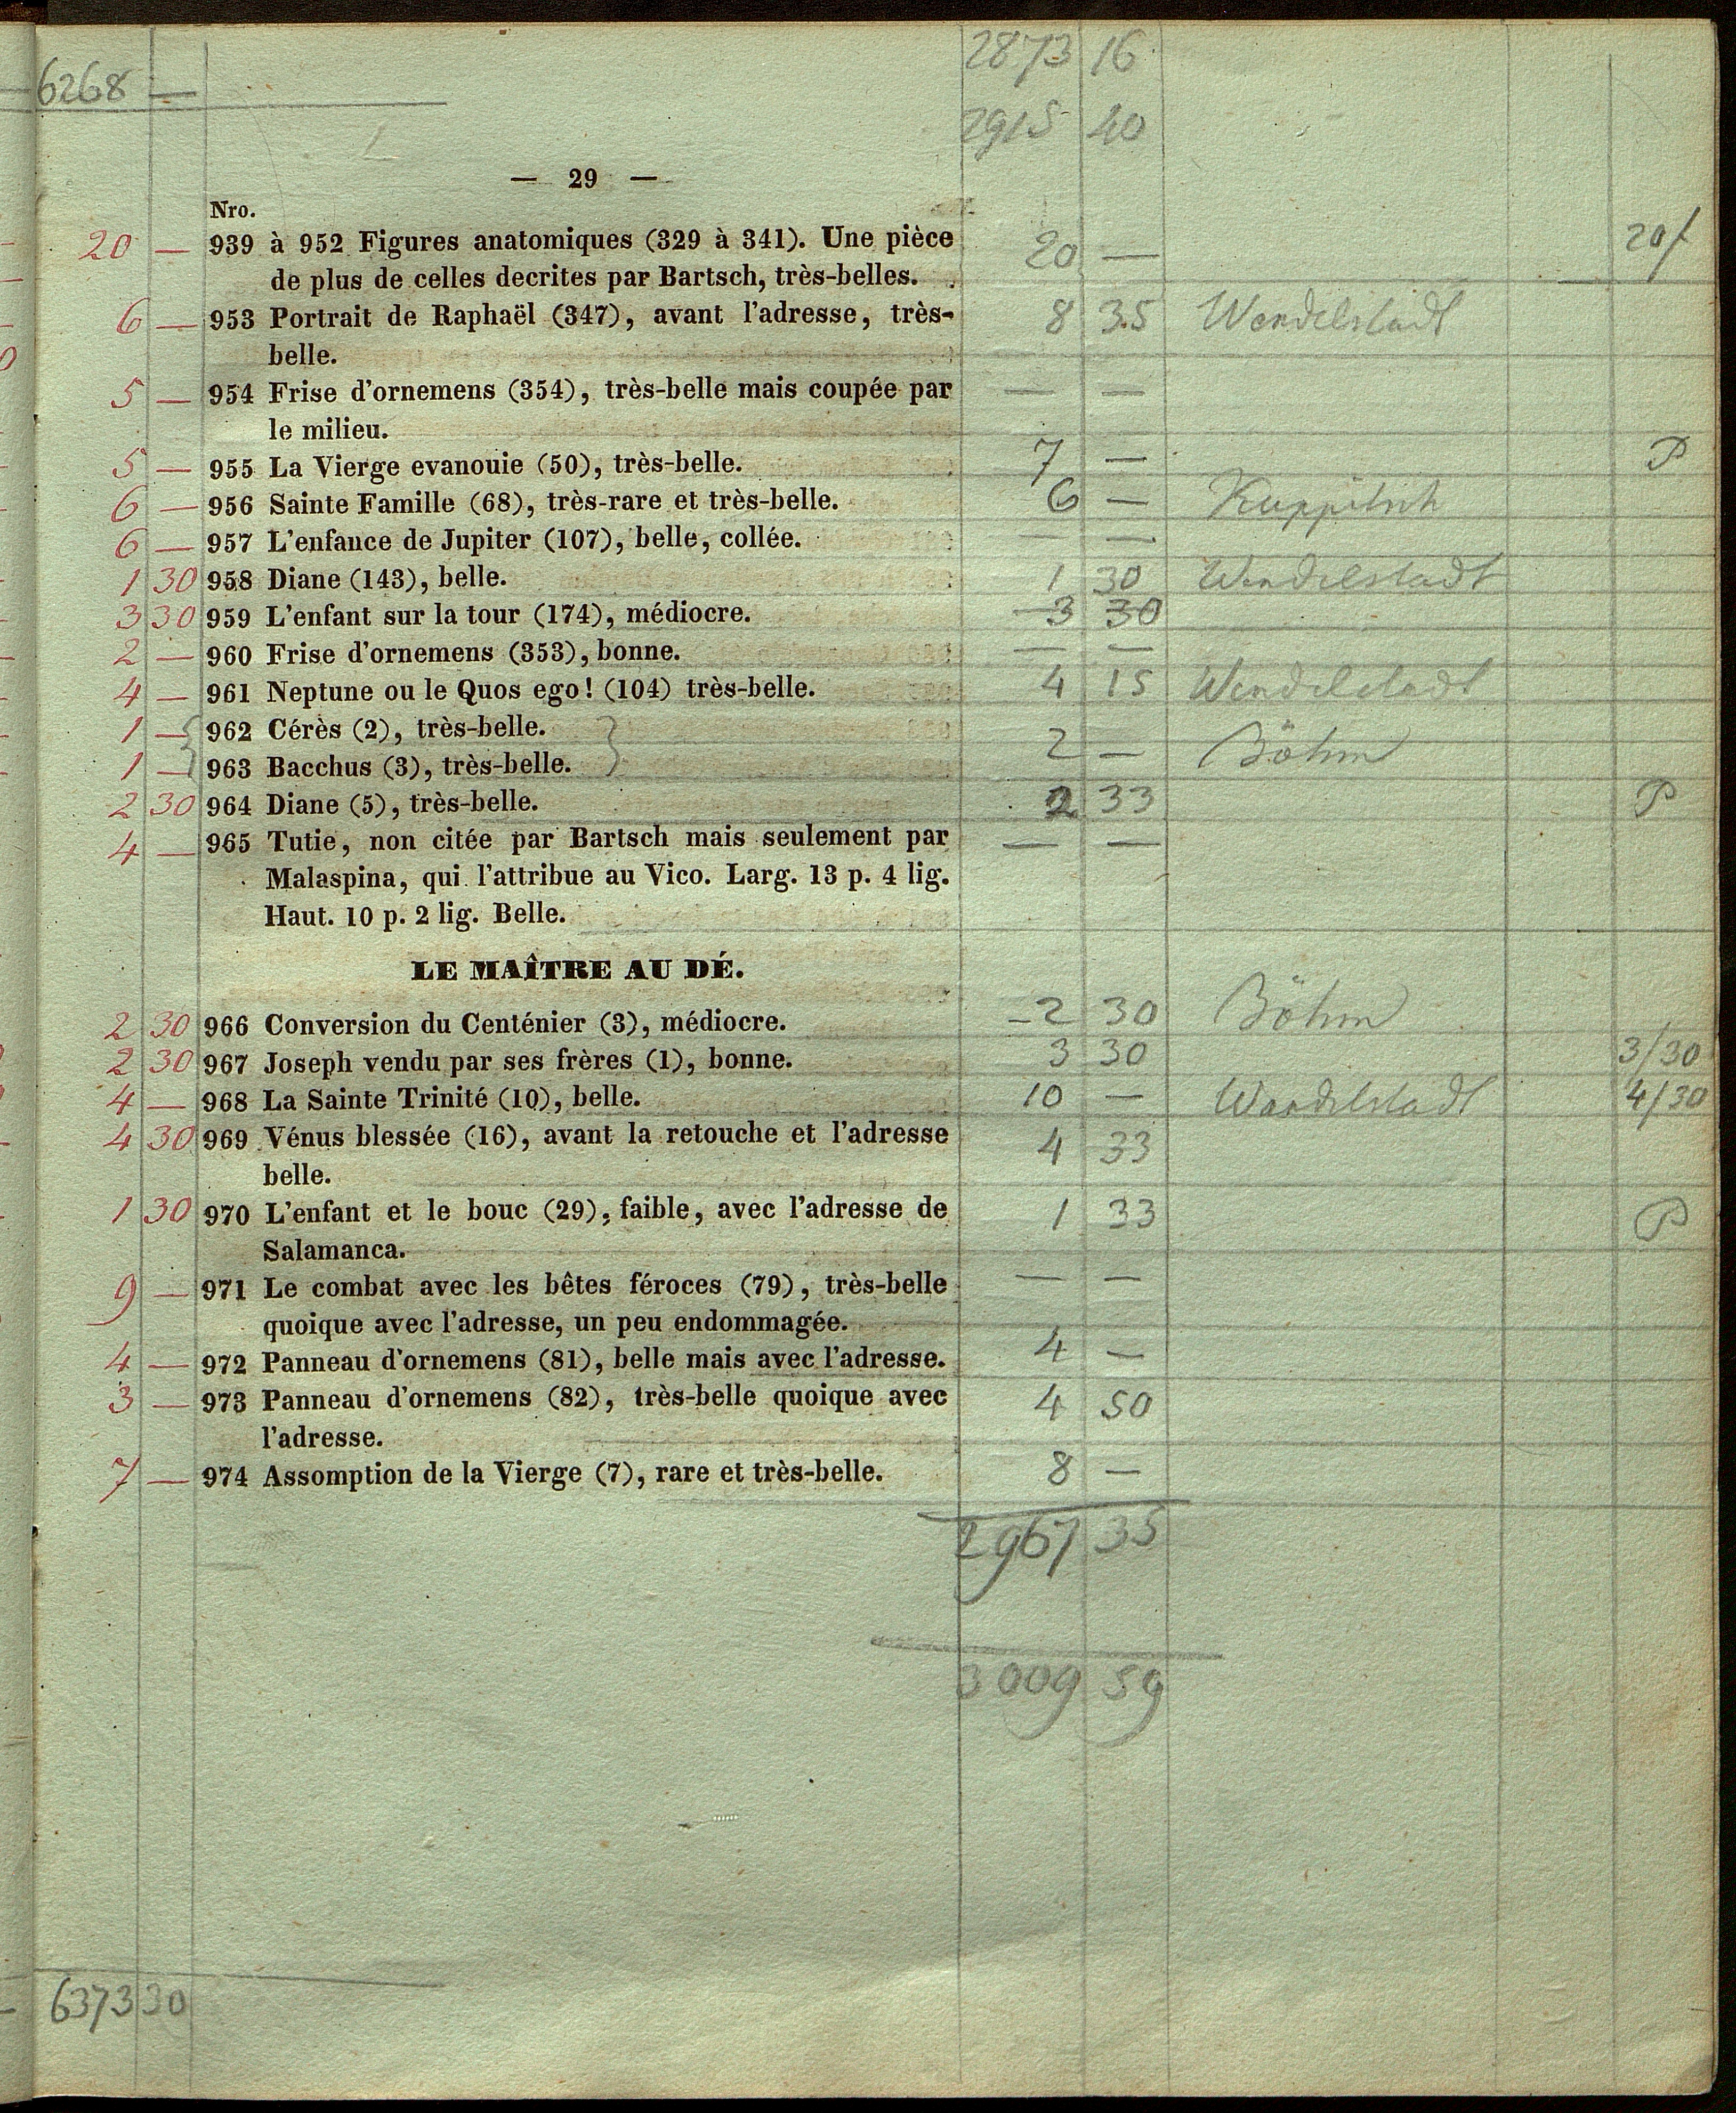 2873 16
6268 —
2915 40
— 29 —
Nro.
20 — 939 à 952 Figures anatomiques (329 à 341). Une pièce 20 —
de plus de celles decrites par Bartsch, très-belles.
6 — 953 Portrait de Raphaël (347), avant l'adresse, très- 8 35 Wendelstadt
belle.
5 — 954 Frise d'ornemens (354), très-belle mais coupée par — —
le milieu.
5 — 955 La Vierge evanouie (50), très-belle. 7 — P
6 — 956 Sainte Famille (68), très-rare et très-belle. 6 — Kuppitsch
6 — 957 L'enfance de Jupiter (107), belle, collée. — —
1 30 958 Diane (143), belle. 1 30 Wendelstadt
3 30 959 L'enfant sur la tour (174), médiocre. 3 30
2 — 960 Frise d'ornemens (353), bonne. — —
4 — 961 Neptune ou le Quos ego! (104) très-belle. 4 15 Wendelstadt
1 — 962 Cérès (2), très-belle.
2 — Böhm
1 — 963 Bacchus (3), très-belle.
2 30 964 Diane (5), très-belle. 2 33 P
4 — 965 Tutie, non citée par Bartsch mais seulement par — —
Malaspina, qui l'attribue au Vico. Larg. 13 p. 4 lig.
Haut. 10 p. 2 lig. Belle.
LE MAÎTRE AU DÉ.
2 30 966 Conversion du Centénier (3), médiocre. 2 30 Böhm
2 30 967 Joseph vendu par ses frères (1), bonne. 3 30 3/30
4 — 968 La Sainte Trinité (10), belle. 10 — Wendelstadt 4/30
4 30 969 Vénus blessée (16), avant la retouche et l'adresse 4 33
belle.
1 30 970 L'enfant et le bouc (29), faible, avec l'adresse de 1 33 P
Salamanca.
9 — 971 Le combat avec les bêtes féroces (79), très-belle — —
quoique avec l'adresse, un peu endommagée.
4 — 972 Panneau d'ornemens (81), belle mais avec l'adresse. 4 —
3 — 973 Panneau d'ornemens (82), très-belle quoique avec 4 50
l'adresse.
7 — 974 Assomption de la Vierge (7), rare et très-belle. 8 —
2967 35
3009 59
6373 30